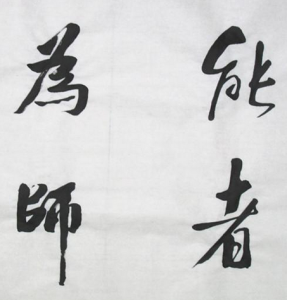 能者
為師